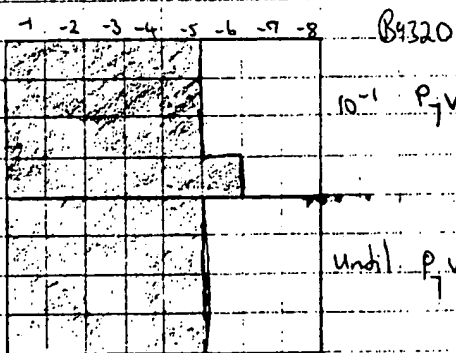 -1 -2 -3 -4 -5 -6 -7 -8
B4320
10⁻¹ P₇V
Until P₇V